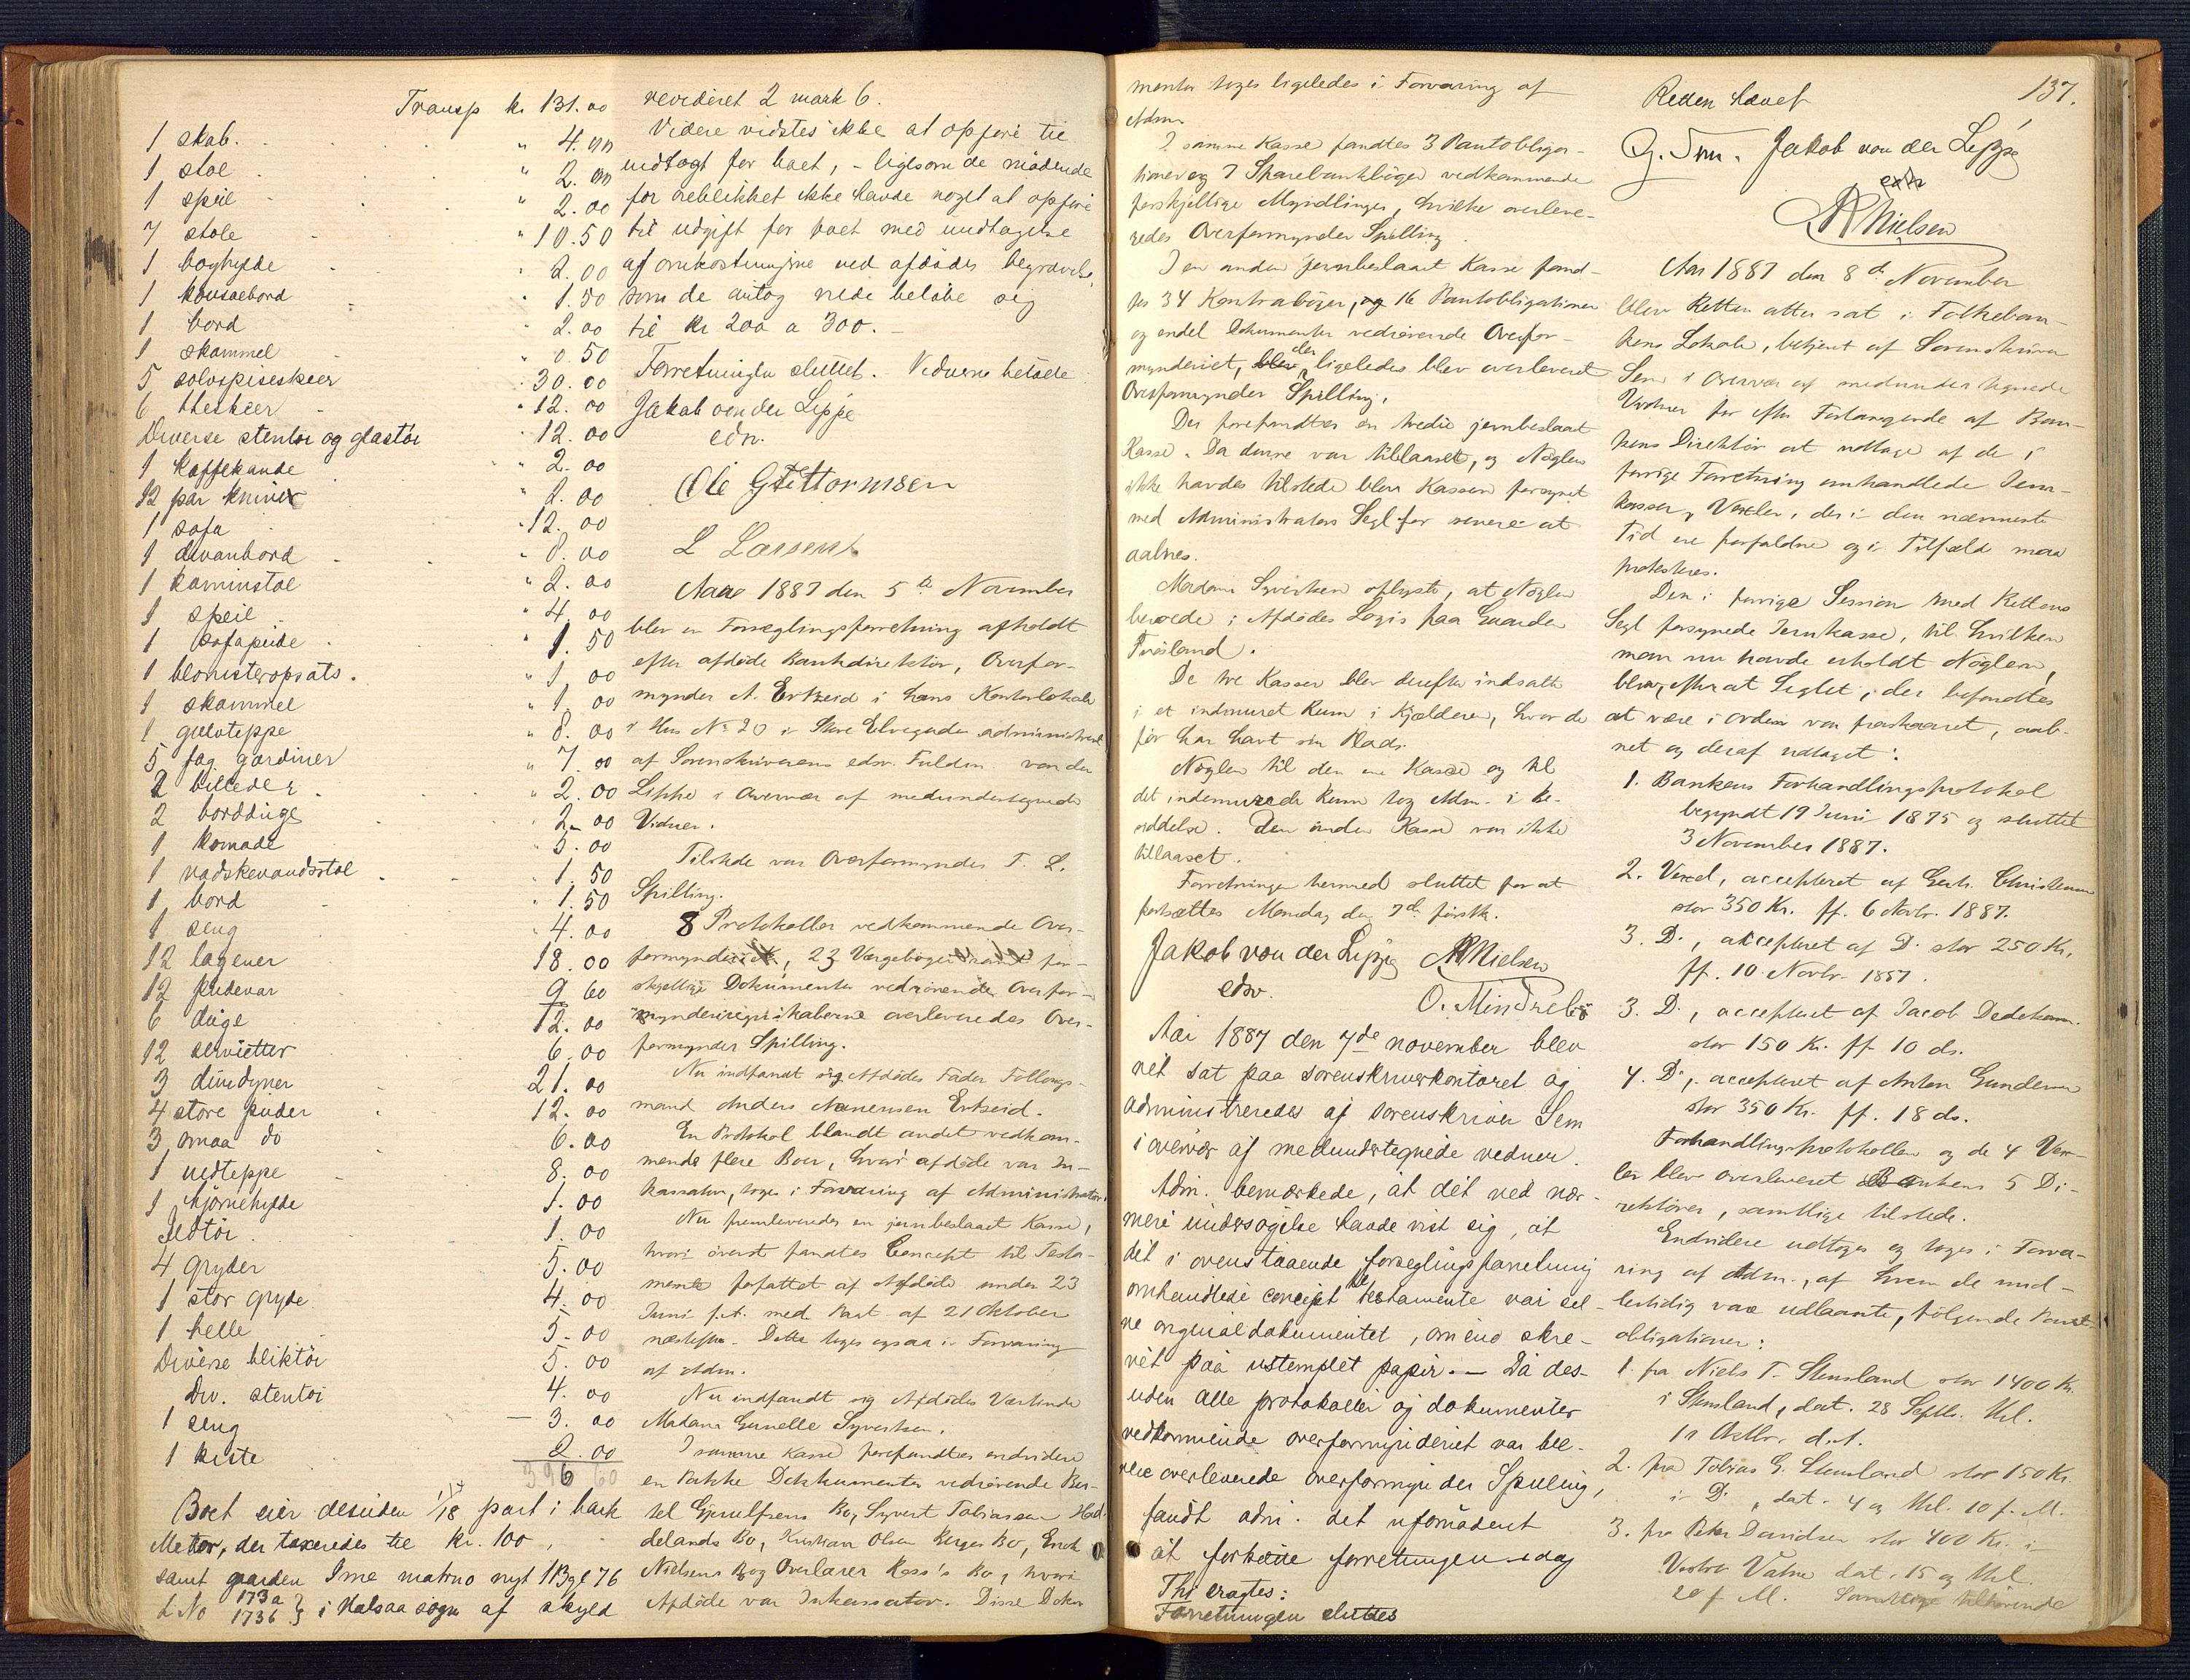 Transp kr 131.00
1 skab. " 4.00
1 stol " 2.00
1 speil " 2.00
7 stole " 10.50
1 boghylde " 2.00
1 konsolbord " 1.50
1 bord 2.00
1 skammel " 0.50
5 sølvspiseskeer " 30.00
6 theskeer " 12.00
Diverse stentøi og glastøi " 12.00
1 kaffekande " 2.00
12 par knive " 2.00
1 sofa " 12.00
1 divanbord " 8.00
1 kaminstol " 2.00
1 speil " 4.00
1 sofapude " 1.50
1 blomsteropsats. " 1.00
1 skammel " 1.00
1 gulvteppe " 8.00
5 fag gardiner " 7.00
2 billeder " 2.00
2 borddüge 2.00
1 komode " 5.00
1 vadskevandsstol " 1.50
1 bord " 1.50
1 seng " 4.00
12 lagener 18.00
12 pudevar 9.60
6 düge 12.00
12 servietter 6.00
3 dundyner 21.00
4 store puder 12.00
3 smaa do 6.00
1 uldteppe 8.00
1 hjørnehylde 1.00
Ildtøi 1.00
4 gryder 5.00
1 stor gryde 4.00
1 helle 5.00
Diverse bliktøi 5.00
Div. stentøi 4.00
1 seng 3.00
1 kiste 2.00
396 60
Boet eier desuden 1/18 part i bark
Meteor, der taxeredes til kr. 100,
samt gaarden Ime matrno nyt 113 gl 76
LNo 173a 173b } i Halsaa sogn af skyld
revideret 2 mark 6.
Videre vidstes ikke at opføre til
indtægt for boet, - ligesom de mødende
for øieblikket ikke havde noget at opføre
til udgift for boet med undtagelse
af omkostningerne ved afdødes begravelse,
som de antog vilde beløbe sig
til kr 200 a 300. -
Forretningen sluttet. Vidnerne betalte
Jakob von der Lippe
edsv.
Ole Guttormsen
L Larsen
Aar 1887 den 5te November
blev en Forseglingsforretning afholdt
efter afdøde Bankdirektør, Overfor-
mynder A. Ertzeid i hans Kontorlokale
i Hus No 20 i Store Elvegaden administreret
af Sorenskriverens edsv. Fuldm. von der
Lippe i Overvær af medundertegnede
Vidner.
Tilstede var Overformynder T. L.
Spilling.
8 Protokoller vedkommende Over-
formynderiet, 23 Værgebøger for-
skjellige Dokumenter vedrørende Overfor-
mynderregnskaberne overleveredes Over-
formynder Spilling.
Nu indfandt sig Afdødes Fader Follougs-
mand Anders Ertzeid.
En Protokol blandt andet vedkom-
mende flere Boer, hvori afdøde var In-
kassator, toges i Forvaring af Administrator.
Nu fremleveredes en jernbeslaaet Kasse,
hvori øverst fandtes Concept til Testa-
mente forfattet af Afdøde under 23
Juni f.A. med Paat. af 21 Oktober
næstefter. Dette toges ogsaa i Forvaring
af Adm.
Nu indfandt sig Afdødes Værtinde
Madam Gunelle Syvertsen.
I samme Kasse forefandtes endvidere
en Pakke Dokumenter vedrørende Ber-
tel Bo, Syvert Tobiassen Had-
delands Bo, Kristian Olsen Bo, Enok
Nielsens Bo og Overlærer Ross's Bo, hvori
Afdøde var Inkassator. Disse Doku
menter toges ligeledes i Forvaring af
Adm.
I samme Kasse fandtes 3 Pantobliga-
tioner og 7 Sparebankbøger vedkommende
forskjellige Myndlinger, hvilke overleve-
redes Overformynder Spilling.
I en anden jernbeslaaet Kasse fand-
tes 34 Kontrabøger, og 16 Pantobligationer
og endel Dokumenter vedrørende Overfor-
mynderiet, der ligeledes blev overleveret
Overformynder Spilling.
Der forefandtes en tredie jernbeslaaet
Kasse. Da denne var tillaaset, og Nøglen
ikke havdes tilstede blev Kassen forsynet
med Administrators Segl for senere at
aabnes.
Madam Syvertsen oplyste, at Nøglen
beroede i Afdødes Logis paa Gaarden
Frøisland.
De tre Kasser blev derefter indsatte
i et indmuret Rum i Kjælderen, hvor de
før har havt sin Plads.
Nøglen til den ene Kasse og til
det indemurede Rum tog Adm. i Be-
siddelse. Den anden Kasse var ikke
tillaaset.
Forretningen hermed sluttet for at
fortsættes Mandag den 7de førstk.
Jakob von der Lippe
edsv.
Nielsen
O. Mindrebø
Aar 1887 den 7de november blev
ret sat paa sorenskriverkontoret og
administreredes af sorenskriver Sem
i overvær af medundertegnede vidner.
Adm. bemærkede, at det ved nær-
mere undersøgelse havde vist sig, at
det i ovenstaaende forseglingsforretning
omhandlede concept til testamente var sel-
ve originaldokumentet, om end skre-
vet paa ustemplet papir. — Da des-
uden alle protokoller og dokumenter
vedkommende overformynderiet var ble-
vne overleverede overformynder Spilling,
fandt adm. det ufornødent
at fortsætte forretningen idag
Thi eragtes:
Forretningen sluttes
137.
Retten hævet
G. Sem. Jakob von der Lippe
edsv
Nielsen
Aar 1887 den 8de November
blev Retten atter sat i Folkeban-
kens Lokale, betjent af Sorenskriver
Sem i Overvær af medundertegnede
Vidner for efter Forlangende af Ban-
kens Direktør at udtage af de i
forrige Forretning omhandlede Jern-
kasser, Vexler, der i den nærmeste
Tid ere forfaldne og i Tilfælde maa
protesteres.
Den i forrige Session med Rettens
Segl forsynede Jernkasse, til hvilken
man nu havde erholdt Nøglen,
blev, efterat Seglet, der befandtes
at være i Orden var fraskaaret, aab-
net og deraf udtaget:
1. Bankens Forhandlingsprotokol
begyndt 19 Juni 1875 og sluttet
3 November 1887.
2. Vexel, accepteret af Gerh. Christensen
stor 350 Kr. ff. 6 Novbr. 1887.
3. Do, akcepteret af Do stor 250 Kr,
ff. 10 Novbr. 1887.
3. Do, accepteret af Jacob Dedekam.
stor 150 Kr. ff 10 ds.
4. Do, accepteret af Anton Gundersen
stor 350 Kr. ff. 18 ds.
Forhandlingsprotokollen og de 4 Vex-
ler blev overleveret Bankens 5 Di-
rektører, samtlige tilstede.
Endvidere udtoges og toges i Forva-
ring af Adm., af hvem de imid-
lertidig vare udlaante, følgende Pant-
obligationer:
1. fra Niels T. Stensland stor 1400 Kr.
i Stensland, dat. 28 Septbr. thl.
1r Oktbr. d.A.
2. fra Tobias G. Stensland stor 150 Kr.
i Do, dat. 4 og thl. 10 f. M.
3. fra Peter Davidsen stor 400 Kr. i
Vestre Vatne dat. 15 og thl.
20 f M. Samtlige tilhørende